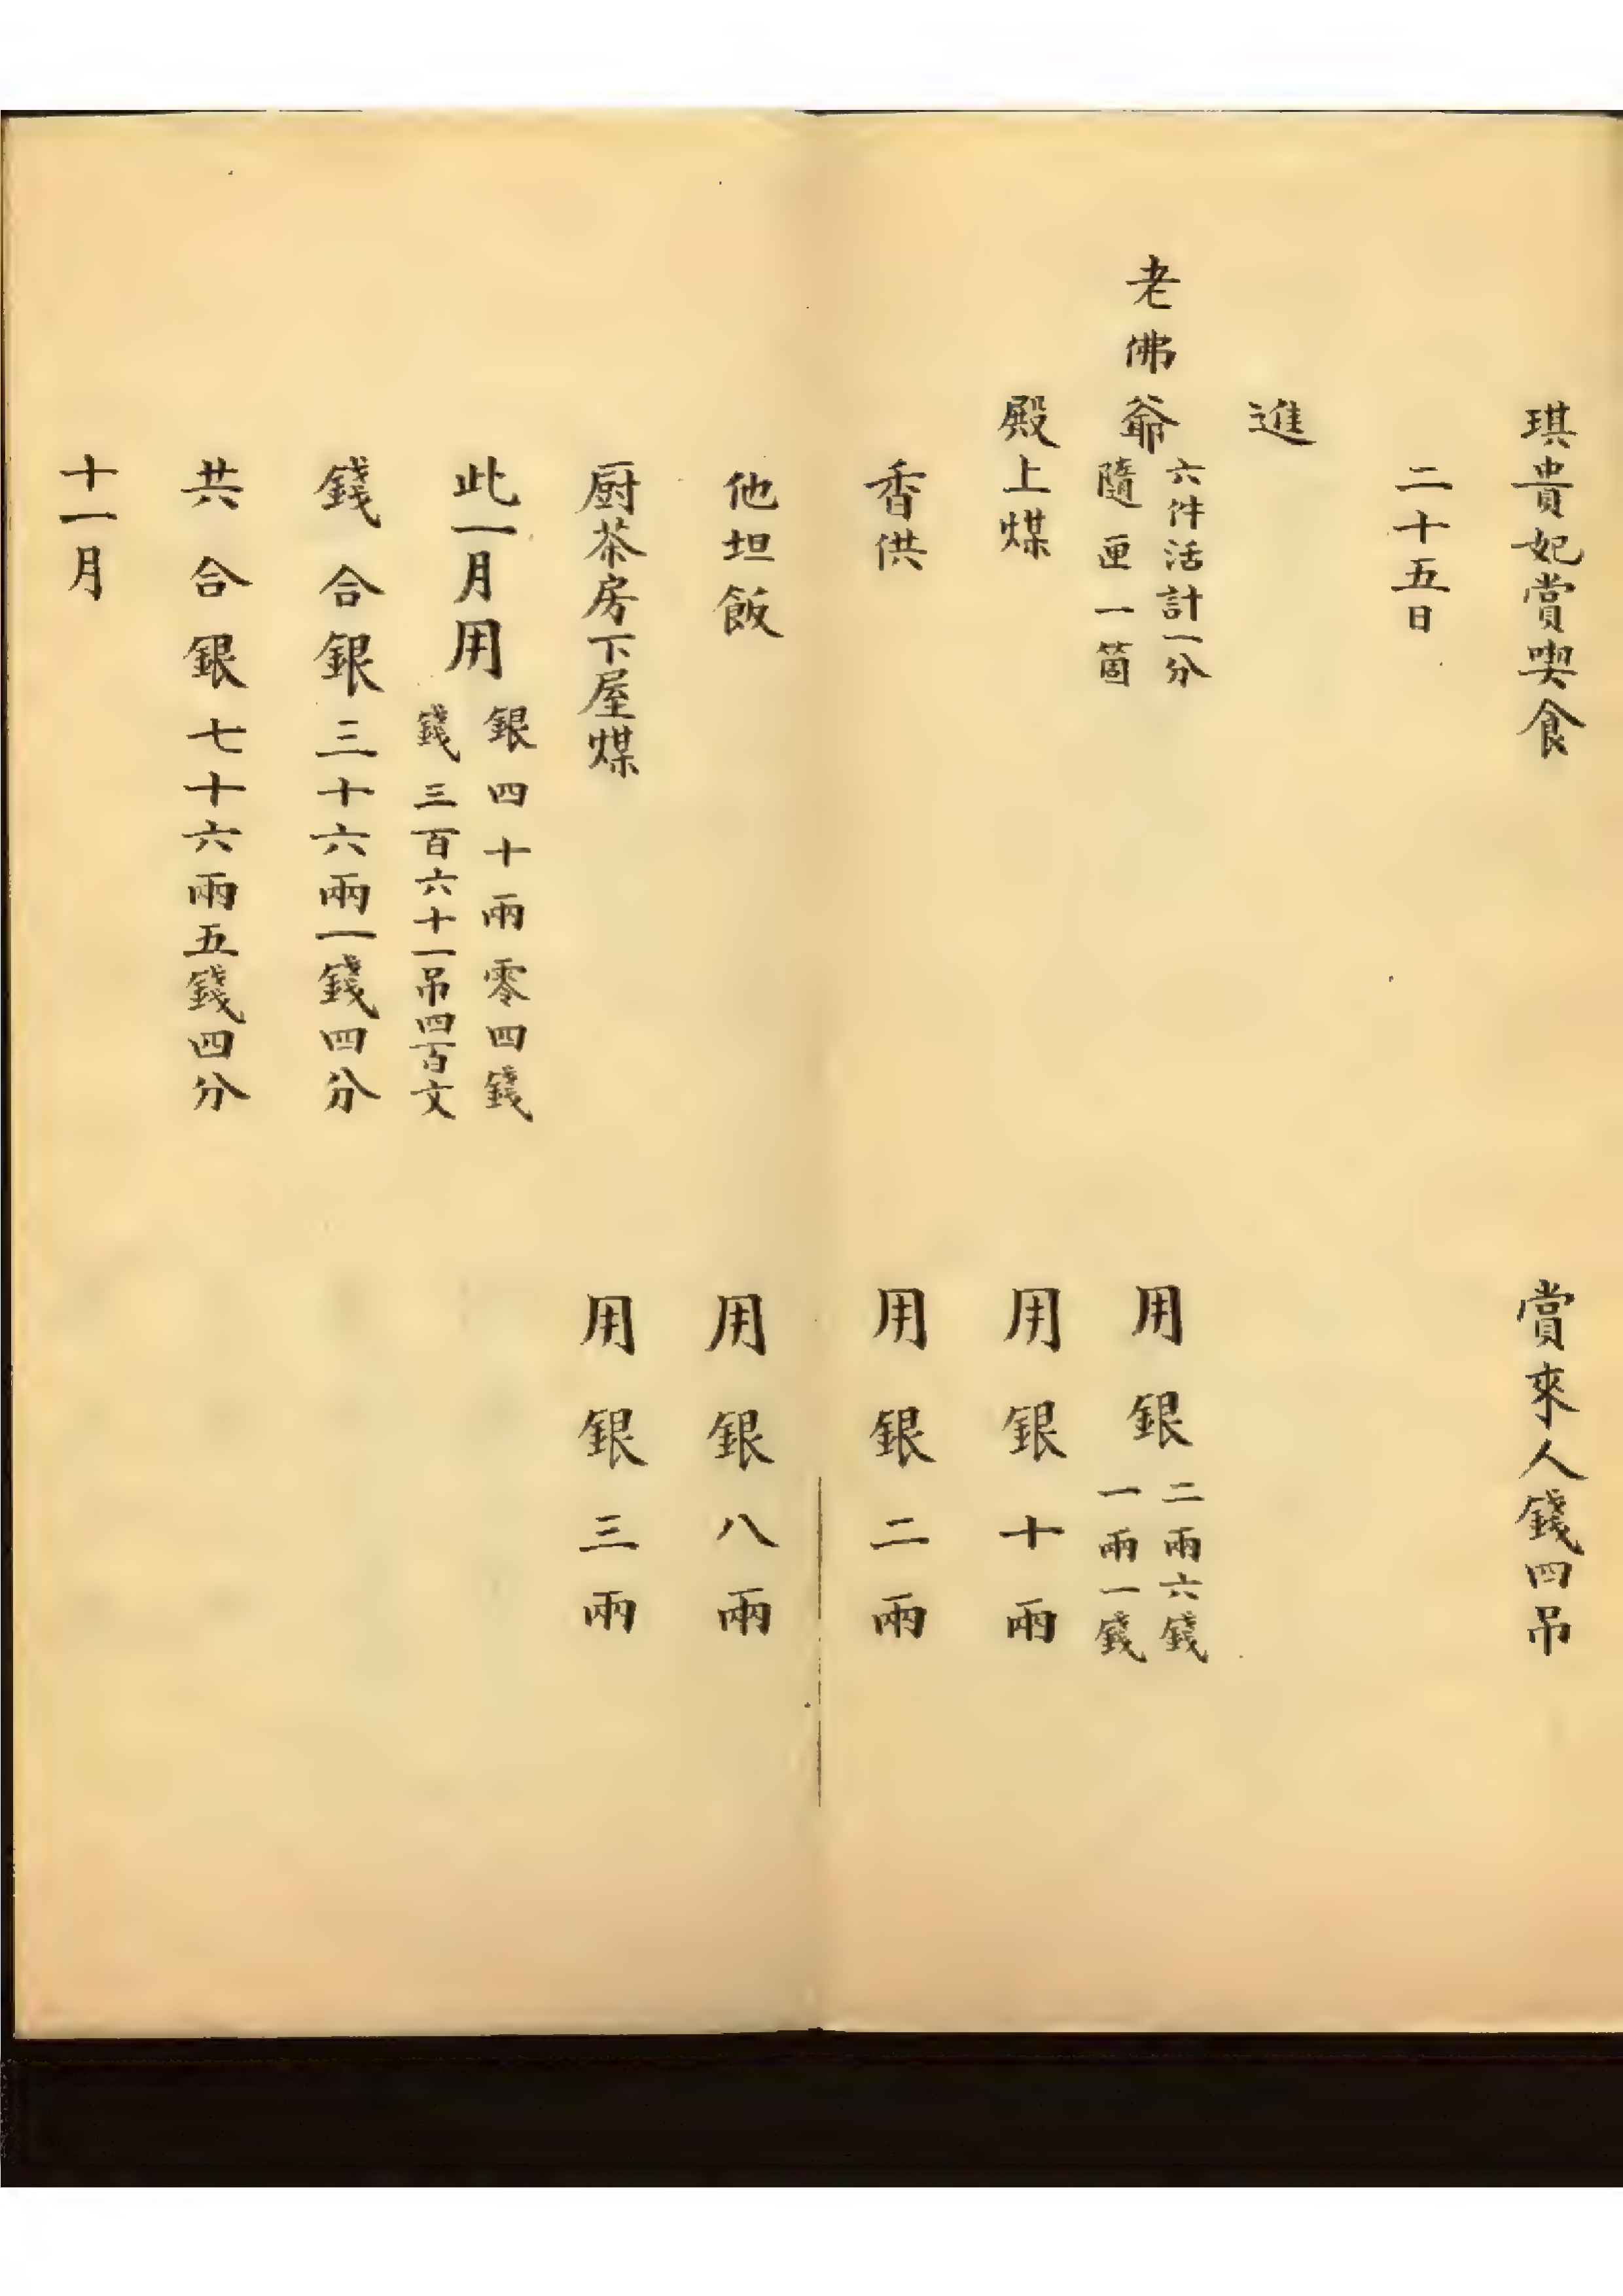 琪貴妃賞喫食　賞來人錢四吊
二十五日
進
老佛爺六件活計一分　用銀二兩六錢
隨匣一箇　一兩一錢
殿上煤　用銀十兩
香供　用銀二兩
他坦飯　用銀八兩
厨茶房下屋煤　用銀三兩
此一月用銀四十兩零四錢
錢三百六十一吊四百文
錢合銀三十六兩一錢四分
共合銀七十六兩五錢四分
十一月